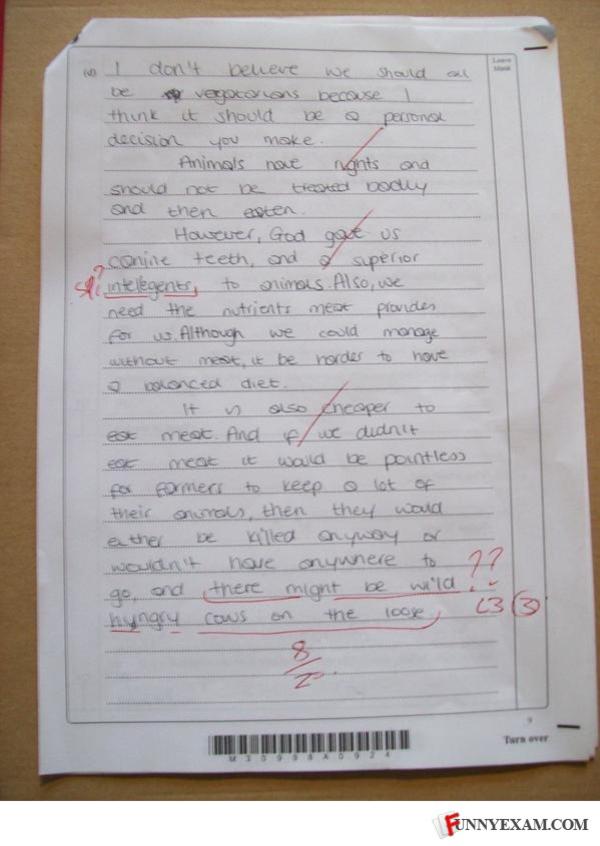 Leave
blank
(d) I don't believe we should all
be vegatarians because I
think it should be a personal
decision you make.
Animals have rights and
should not be treated badly
and then eaten.
However, God gave us
canine teeth, and a superior
sp? intelegents, to animals. Also, we
need the nutrients meat provides
for us. Although we could manage
without meat, it be harder to have
a balanced diet.
It is also cheaper to
eat meat. And if we didn't
eat meat it would be pointless
for farmers to keep a lot of
their animals, then they would
either be killed anyway or
wouldn't have anywhere to
go, and there might be wild ??
hungry cows on the loose L3 (3)
8
9
Turn over
M30998A0924
FUNNYEXAM.COM